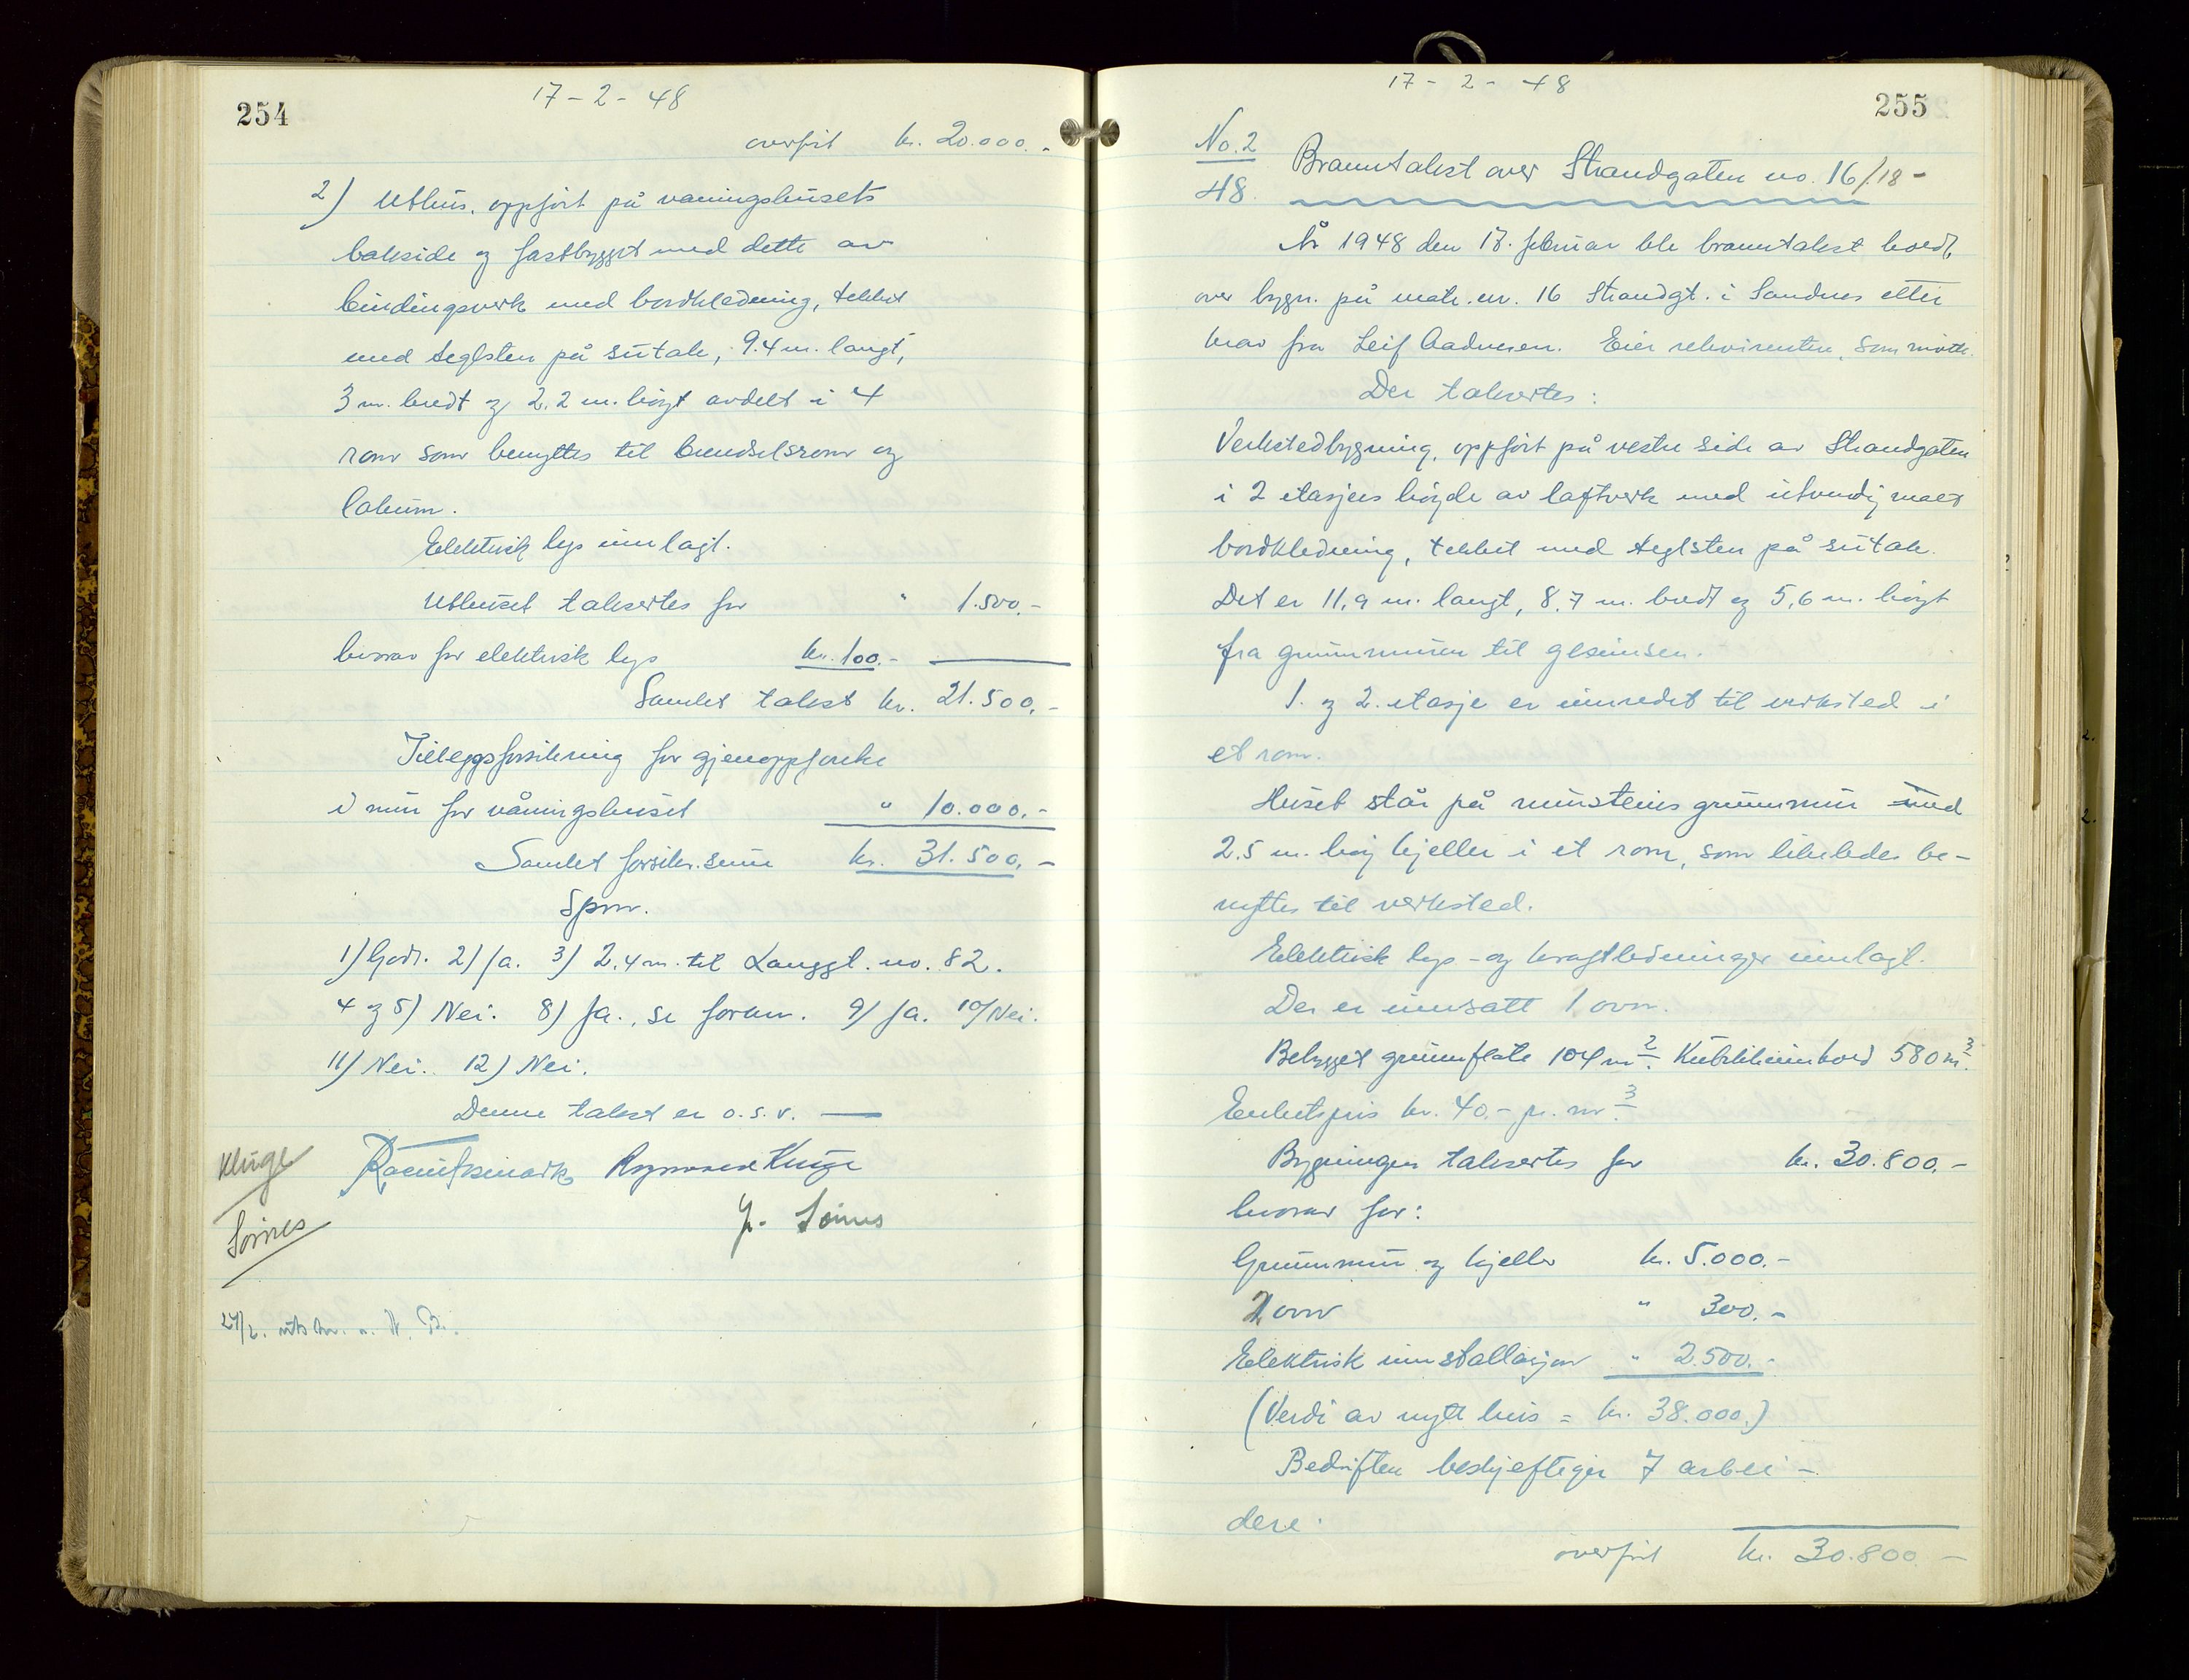 254
17-2-48
overført kr. 20.000.-
2) Uthus, oppført på våningshusets
bakside og fastbygget med dette av
bindingsverk med bordkledning, tekket
med teglsten på sutak, 9.4 m. langt,
3 m. bredt og 2.2 m. høyt avdelt i 4
rom som benyttes til brendselsrom og
lokum.
Elektrisk lys innlagt.
Uthuset takseres for " 1.500.-
hvorav for elektrisk lys kr. 100.-
Samlet takst kr. 21.500.-
Tilleggsforsikring for gjenoppførelse
i mur for våningshuset " 10.000.-
Samlet forsikr.sum kr. 31.500.-
Spm.
1) Godt. 2) Ja. 3) 2.4 m. til Langgt. no. 82.
4 og 5) Nei. 8) Ja., se foran. 9) Ja. 10) Nei.
11) Nei. 12) Nei.
Denne takst er o.s.v.
Kluge
Sømes
J. Sømes
24/2. utskr. n. N. B.
17-2-48
255
No. 2
48.
Branntakst over Strandgaten no. 16/.18-
År 1948 den 17. februar ble branntakst holdt
over bygn. på matr.nr. 16 Strandgt. i Sandnes etter
krav fra Leif Aadnesen. Eier rekvirenten, som møtte.
Der taksertes:
Verkstedbygning, oppført på vestre side av Strandgaten
i 2 etasjers høyde av laftverk med utvendig malt
bordkledning, tekket med teglsten på sutak.
Det er 11,9 m. langt, 8,7 m. bredt og 5,6 m. høyt
fra grunnmuren til gesimsen.
1. og 2. etasje er innredet til verksted i
et rom.
Huset står på mursteins grunnmur med
2.5 m. høy kjeller i et rom, som likeledes be-
nyttes til verksted.
Elektrisk lys- og kraftledninger innlagt.
Der er innsatt 1 ovn.
Bebygget grunnflate 104 m². Kubikkinnhold 580 m³.
Enhetspris kr. 40.- pr. m³
Bygningen taksertes for kr. 30.800.-
hvorav for:
Grunnmur og kjeller kr. 5.000.-
1 ovn " 300.-
Elektrisk innstallasjon " 2.500.-
(Verdi av nytt hus = kr. 38.000.)
Bedriften beskjeftiger 7 arbei-
dere.
overført kr. 30.800.-